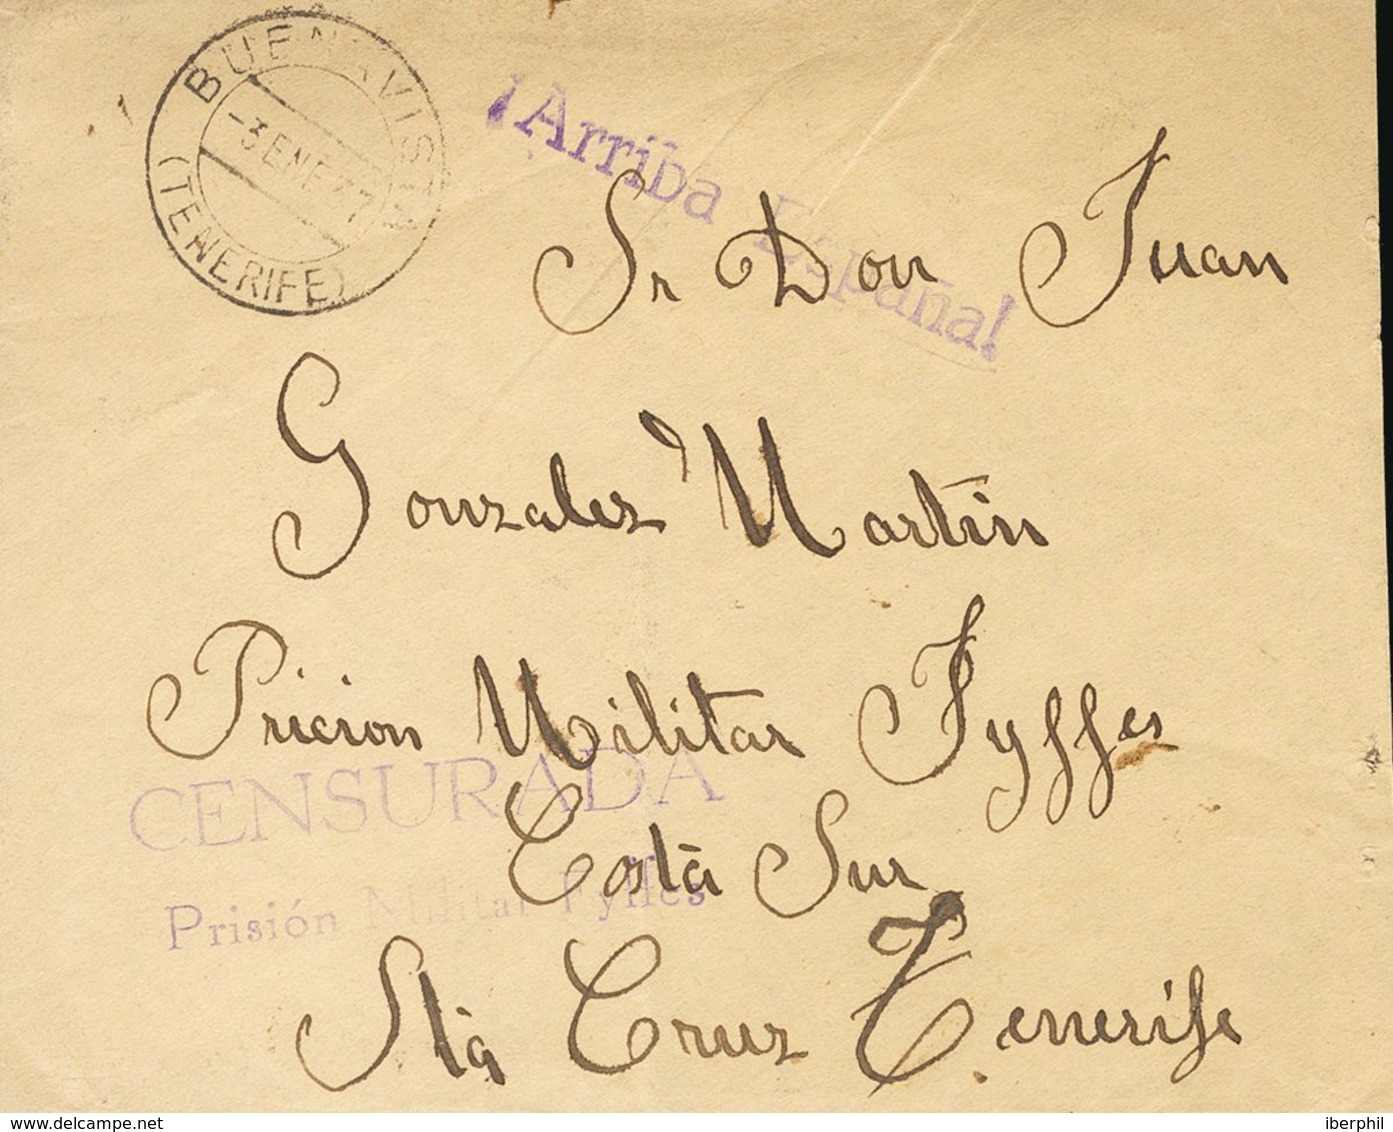 BUENAVISTA
-3 ENE 37
(TENERIFE)
¡Arriba España!
Sr Don Juan
Gonzalez Martin
Pricion Militar Fyffes
CENSURADA
Prisión Militar Fyffes
Costa Sur
Sta Cruz Tenerife
delcampe.net
iberphil